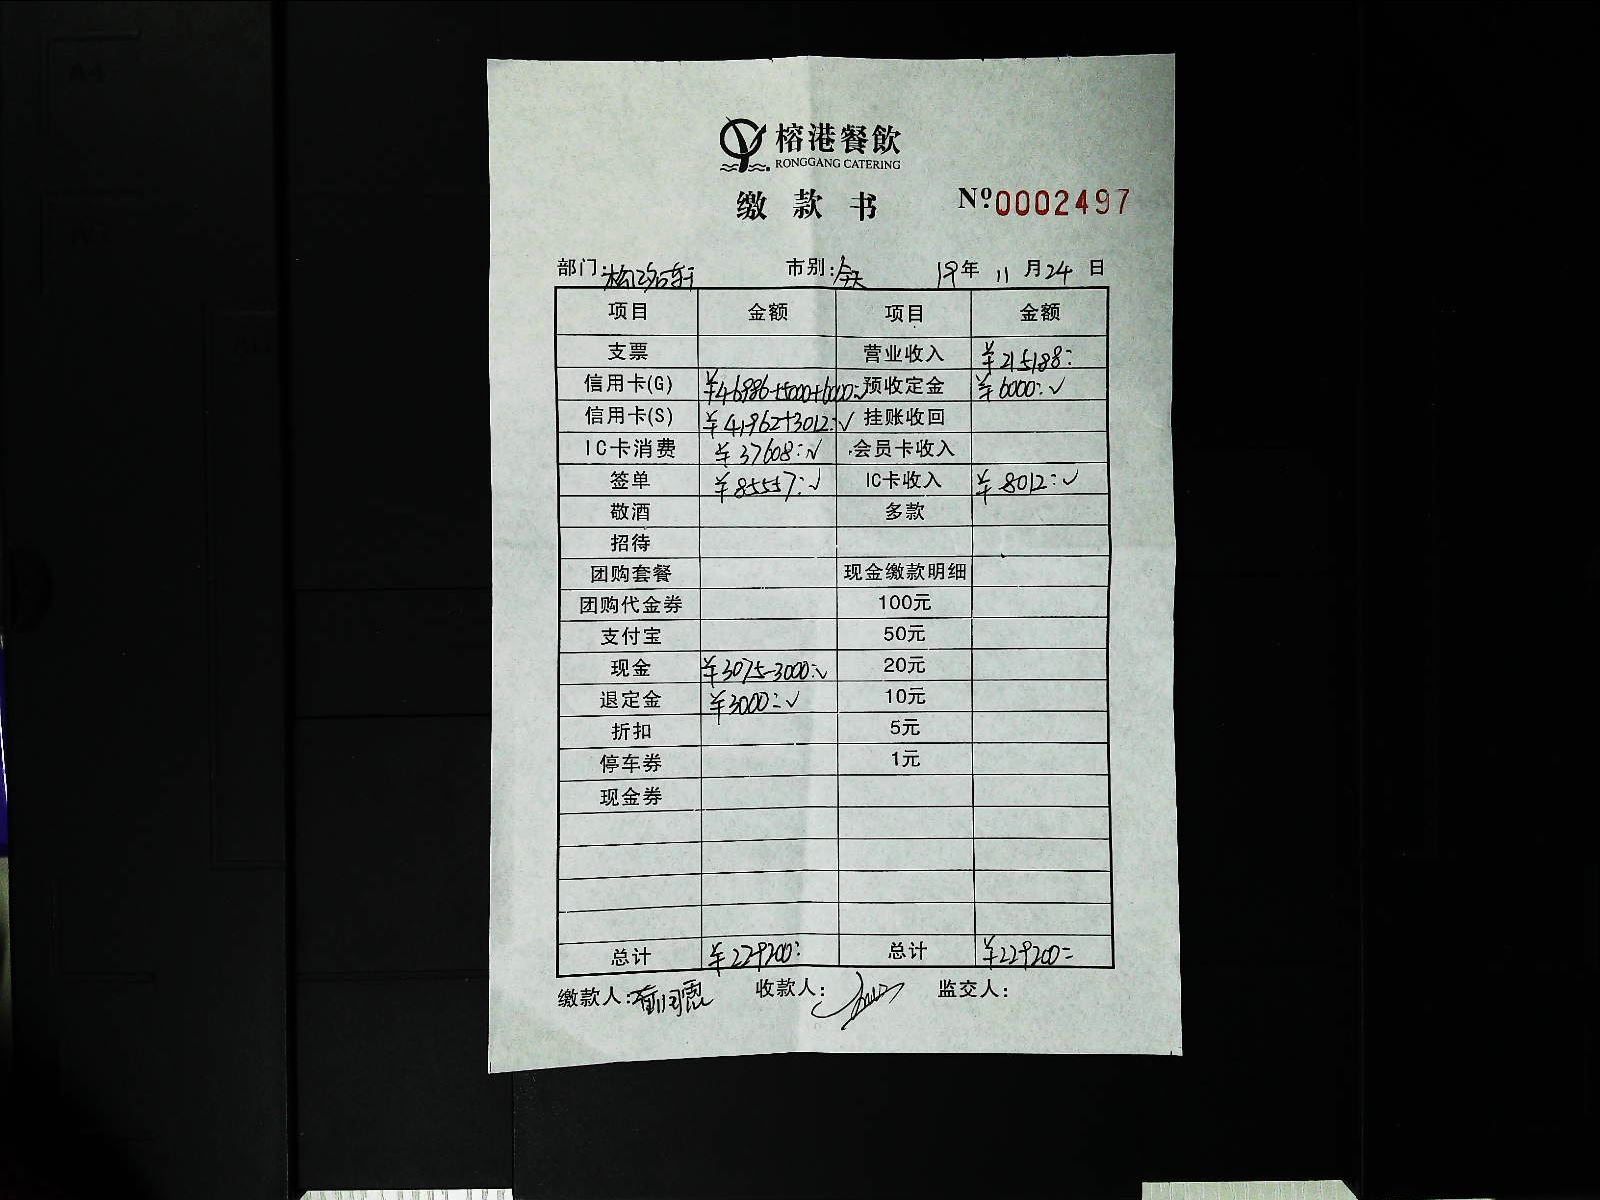 榕港餐飲
RONGGANG CATERING
缴款书 Nº0002497
部门: 市别:全天 19年 11月24日
项目 金额 项目 金额
支票 营业收入 ¥215188:
信用卡(G) ¥46986+5000+6000:√ 预收定金 ¥6000:√
信用卡(S) ¥41962+3012:√ 挂账收回
IC卡消费 ¥37608:√ 会员卡收入
签单 ¥85557:√ IC卡收入 ¥8012:√
敬酒 多款
招待
团购套餐 现金缴款明细
团购代金券 100元
支付宝 50元
现金 ¥3075-3000:√ 20元
退定金 ¥3000:√ 10元
折扣 5元
停车券 1元
现金券
总计 ¥229200: 总计 ¥229200=
缴款人: 收款人: 监交人: